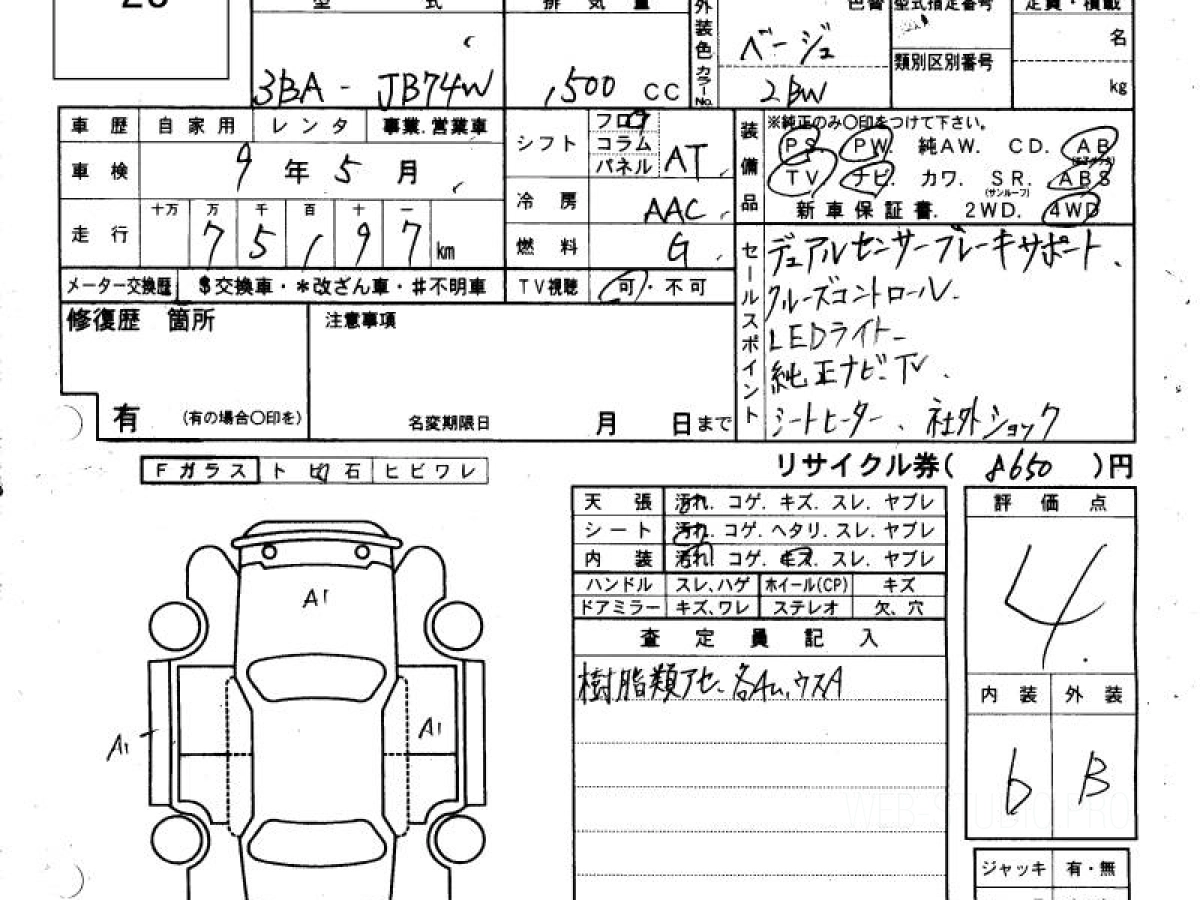 26
型 式
排 気 量
外装色
色替
型式指定番号
定員・積載
3BA - JB74W
1,500 CC
カラーNo.
ベージュ
2BW
類別区別番号
名
kg
車歴 自家用 レンタ 事業.営業車
車検 9年5月
走行 十万 万 千 百 十 一
7 5 1 9 7 km
メーター交換歴 $交換車・*改ざん車・#不明車
シフト フロア コラム パネル AT
冷房 AAC
燃料 G
TV視聴 可・不可
装備品
※純正のみ〇印をつけて下さい。
PS. PW. 純AW. CD. AB
TV ナビ. カワ. SR. ABS
(サンルーフ)
新車保証書. 2WD. 4WD
セールスポイント
デュアルセンサーブレーキサポート、
クルーズコントロール.
LEDライト
純正ナビ.TV、
シートヒーター、社外ショック
修復歴 箇所
有 (有の場合〇印を)
注意事項
名変期限日 月 日まで
リサイクル券( 8650 )円
Fガラス トビ石 ヒビワレ
天張 汚れ. コゲ. キズ. スレ. ヤブレ
シート 汚れ. コゲ. ヘタリ. スレ. ヤブレ
内装 汚れ. コゲ. キズ. スレ. ヤブレ
ハンドル スレ、ハゲ ホイール(CP) キズ
ドアミラー キズ、ワレ ステレオ 欠、穴
査定員記入
樹脂類アセ、各AU、ウスA
評価点
4.
内装 外装
b B
A1
A1
A1
WEB-STUDIO.PRO
ジャッキ 有・無